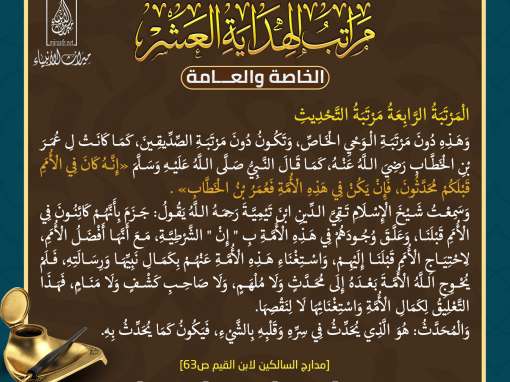 مَرَاتِبُ الهِدَايَةِ العَشْر
الخاصة والعــامة
miraath.net
ميراث الأنبياء
الْمَرْتَبَةُ الرَّابِعَةُ مَرْتَبَةُ التَّحْدِيثِ
وَهَـذِهِ دُونَ مَرْتَبَةِ الْـوَحْيِ الْخَاصِّ، وَتَكُـونُ دُونَ مَرْتَبَةِ الصِّدِّيقِـينَ، كَمَـا كَانَـتْ لِ عُمَـرَ
بْنِ الْخَطَّـابِ رَضِيَ اللَّـهُ عَنْـهُ، كَمَـا قَـالَ النَّبِيُّ صَلَّـى اللَّـهُ عَلَيْـهِ وَسَلَّمَ «إِنَّـهُ كَانَ فِي الْأُمَمِ
قَبْلَكُمْ مُحَدَّثُونَ، فَإِنْ يَكُنْ فِي هَذِهِ الْأُمَّةِ فَعُمَرُ بْنُ الْخَطَّابِ» .
وَسَمِعْتُ شَـيْخَ الْإِسْـلَامِ تَقِيَّ الدِّينِ ابْنَ تَيْمِيَّةَ رَحِمَهُ اللَّهُ يَقُولُ: جَـزَمَ بِأَنَّهُمْ كَائِنُـونَ فِي
الْأُمَمِ قَبْلَنَـا، وَعَلَّقَ وُجُودَهُمْ فِي هَذِهِ الْأُمَّةِ بِ " إِنْ " الشَّرْطِيَّـةِ، مَـعَ أَنَّهَا أَفْضَـلُ الْأُمَمِ،
لِاحْتِيَـاجِ الْأُمَمِ قَبْلَنَا إِلَيْهِمْ، وَاسْتِغْنَاءِ هَـذِهِ الْأُمَّةِ عَنْهُمْ بِكَمَالِ نَبِيِّهَا وَرِسَالَتِهِ، فَلَمْ
يُحْوِجِ اللَّهُ الْأُمَّةَ بَعْدَهُ إِلَى مُحَدَّثٍ وَلَا مُلْهَمٍ، وَلَا صَاحِبِ كَشْفٍ وَلَا مَنَـامٍ، فَهَـذَا
التَّعْلِيقُ لِكَمَالِ الْأُمَّةِ وَاسْتِغْنَائِهَا لَا لِنَقْصِهَا.
وَالْمُحَدَّثُ: هُوَ الَّذِي يُحَدَّثُ فِي سِرِّهِ وَقَلْبِهِ بِالشَّيْءِ، فَيَكُونُ كَمَا يُحَدَّثُ بِهِ.
[مدارج السالكين لابن القيم ص63]